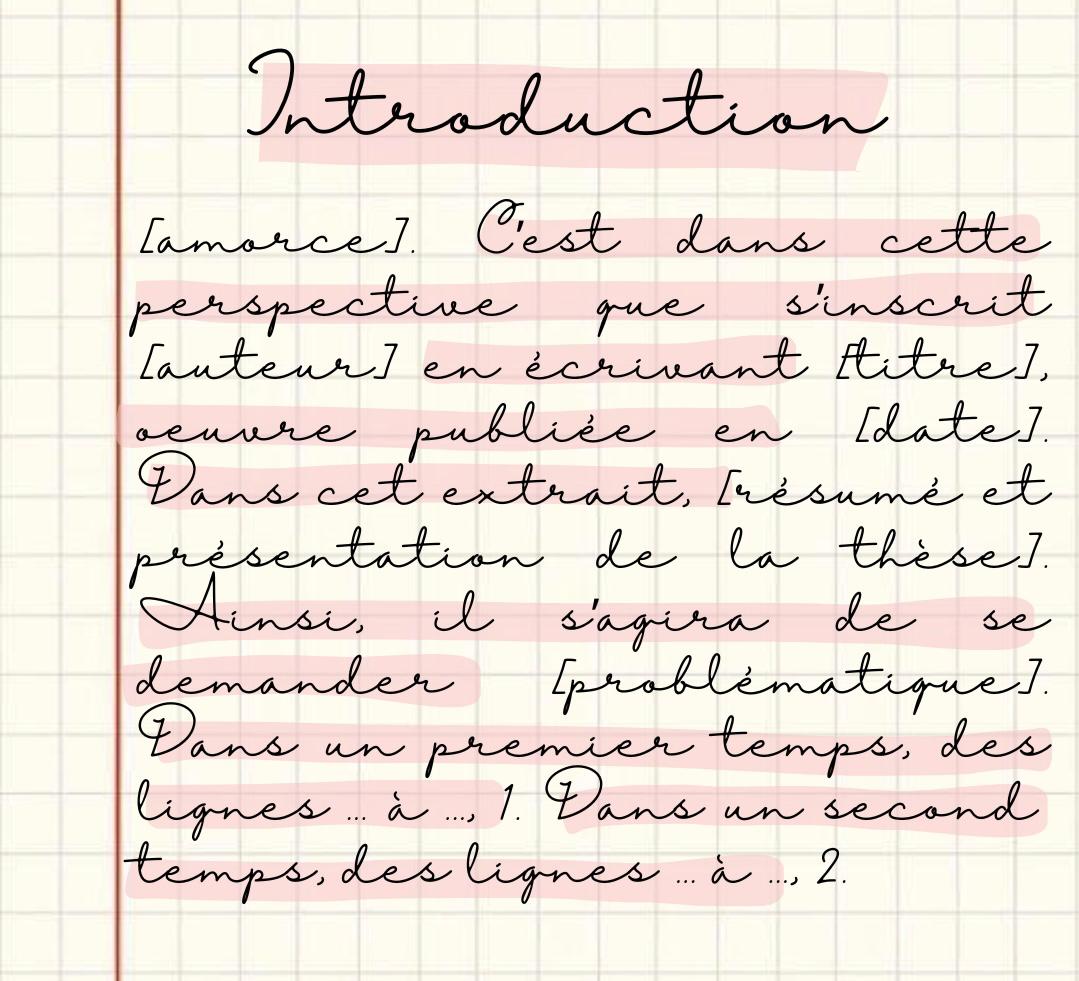 Introduction
[amorce]. C'est dans cette
perspective que s'inscrit
[auteur] en écrivant [titre],
oeuvre publiée en [date].
Dans cet extrait, [résumé et
présentation de la thèse].
Ainsi, il s'agira de se
demander [problématique].
Dans un premier temps, des
lignes ... à ..., 1. Dans un second
temps, des lignes ... à ..., 2.